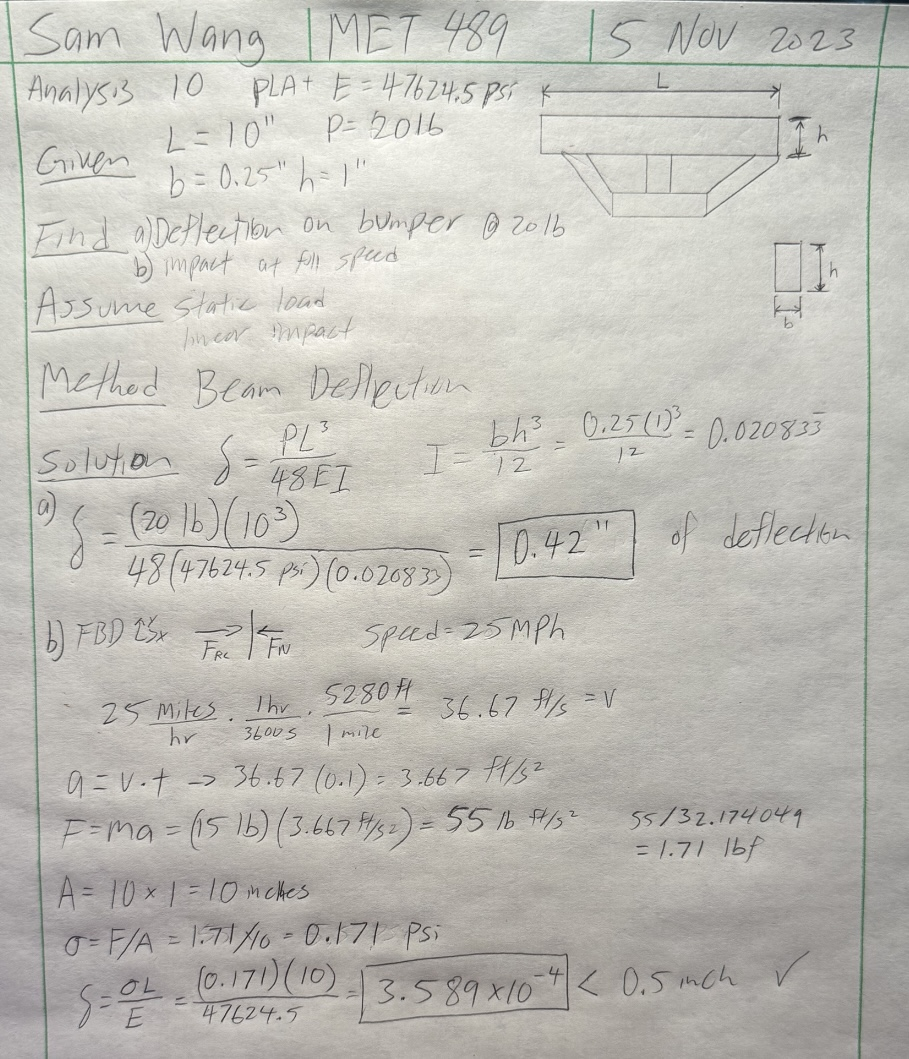 Sam Wang | MET 489 | 5 Nov 2023
Analysis 10 PLA+ E = 47624.5 psi
L
h
Given L = 10" P = 20lb
b = 0.25" h = 1"
Find a) Deflection on bumper @ 20lb
b) impact at full speed
h
b
Assume Static load
linear impact
Method Beam Deflection
Solution δ = PL³/48EI I = bh³/12 = 0.25(1)³/12 = 0.020833̅
a) δ = (20 lb)(10³)/48(47624.5 psi)(0.020833) = 0.42" of deflection
b) FBD F_RC F_N Speed = 25 MPh
25 Miles/hr · 1hr/3600s · 5280ft/1 mile = 36.67 ft/s = V
a = v·t -> 36.67 (0.1) = 3.667 ft/s²
F = ma = (15 lb)(3.667 ft/s²) = 55 lb ft/s² 55/32.174049
= 1.71 lbf
A = 10 × 1 = 10 inches
σ = F/A = 1.71/10 = 0.171 Psi
δ = σL/E = (0.171)(10)/47624.5 = 3.589 × 10⁻⁴ < 0.5 inch ✓